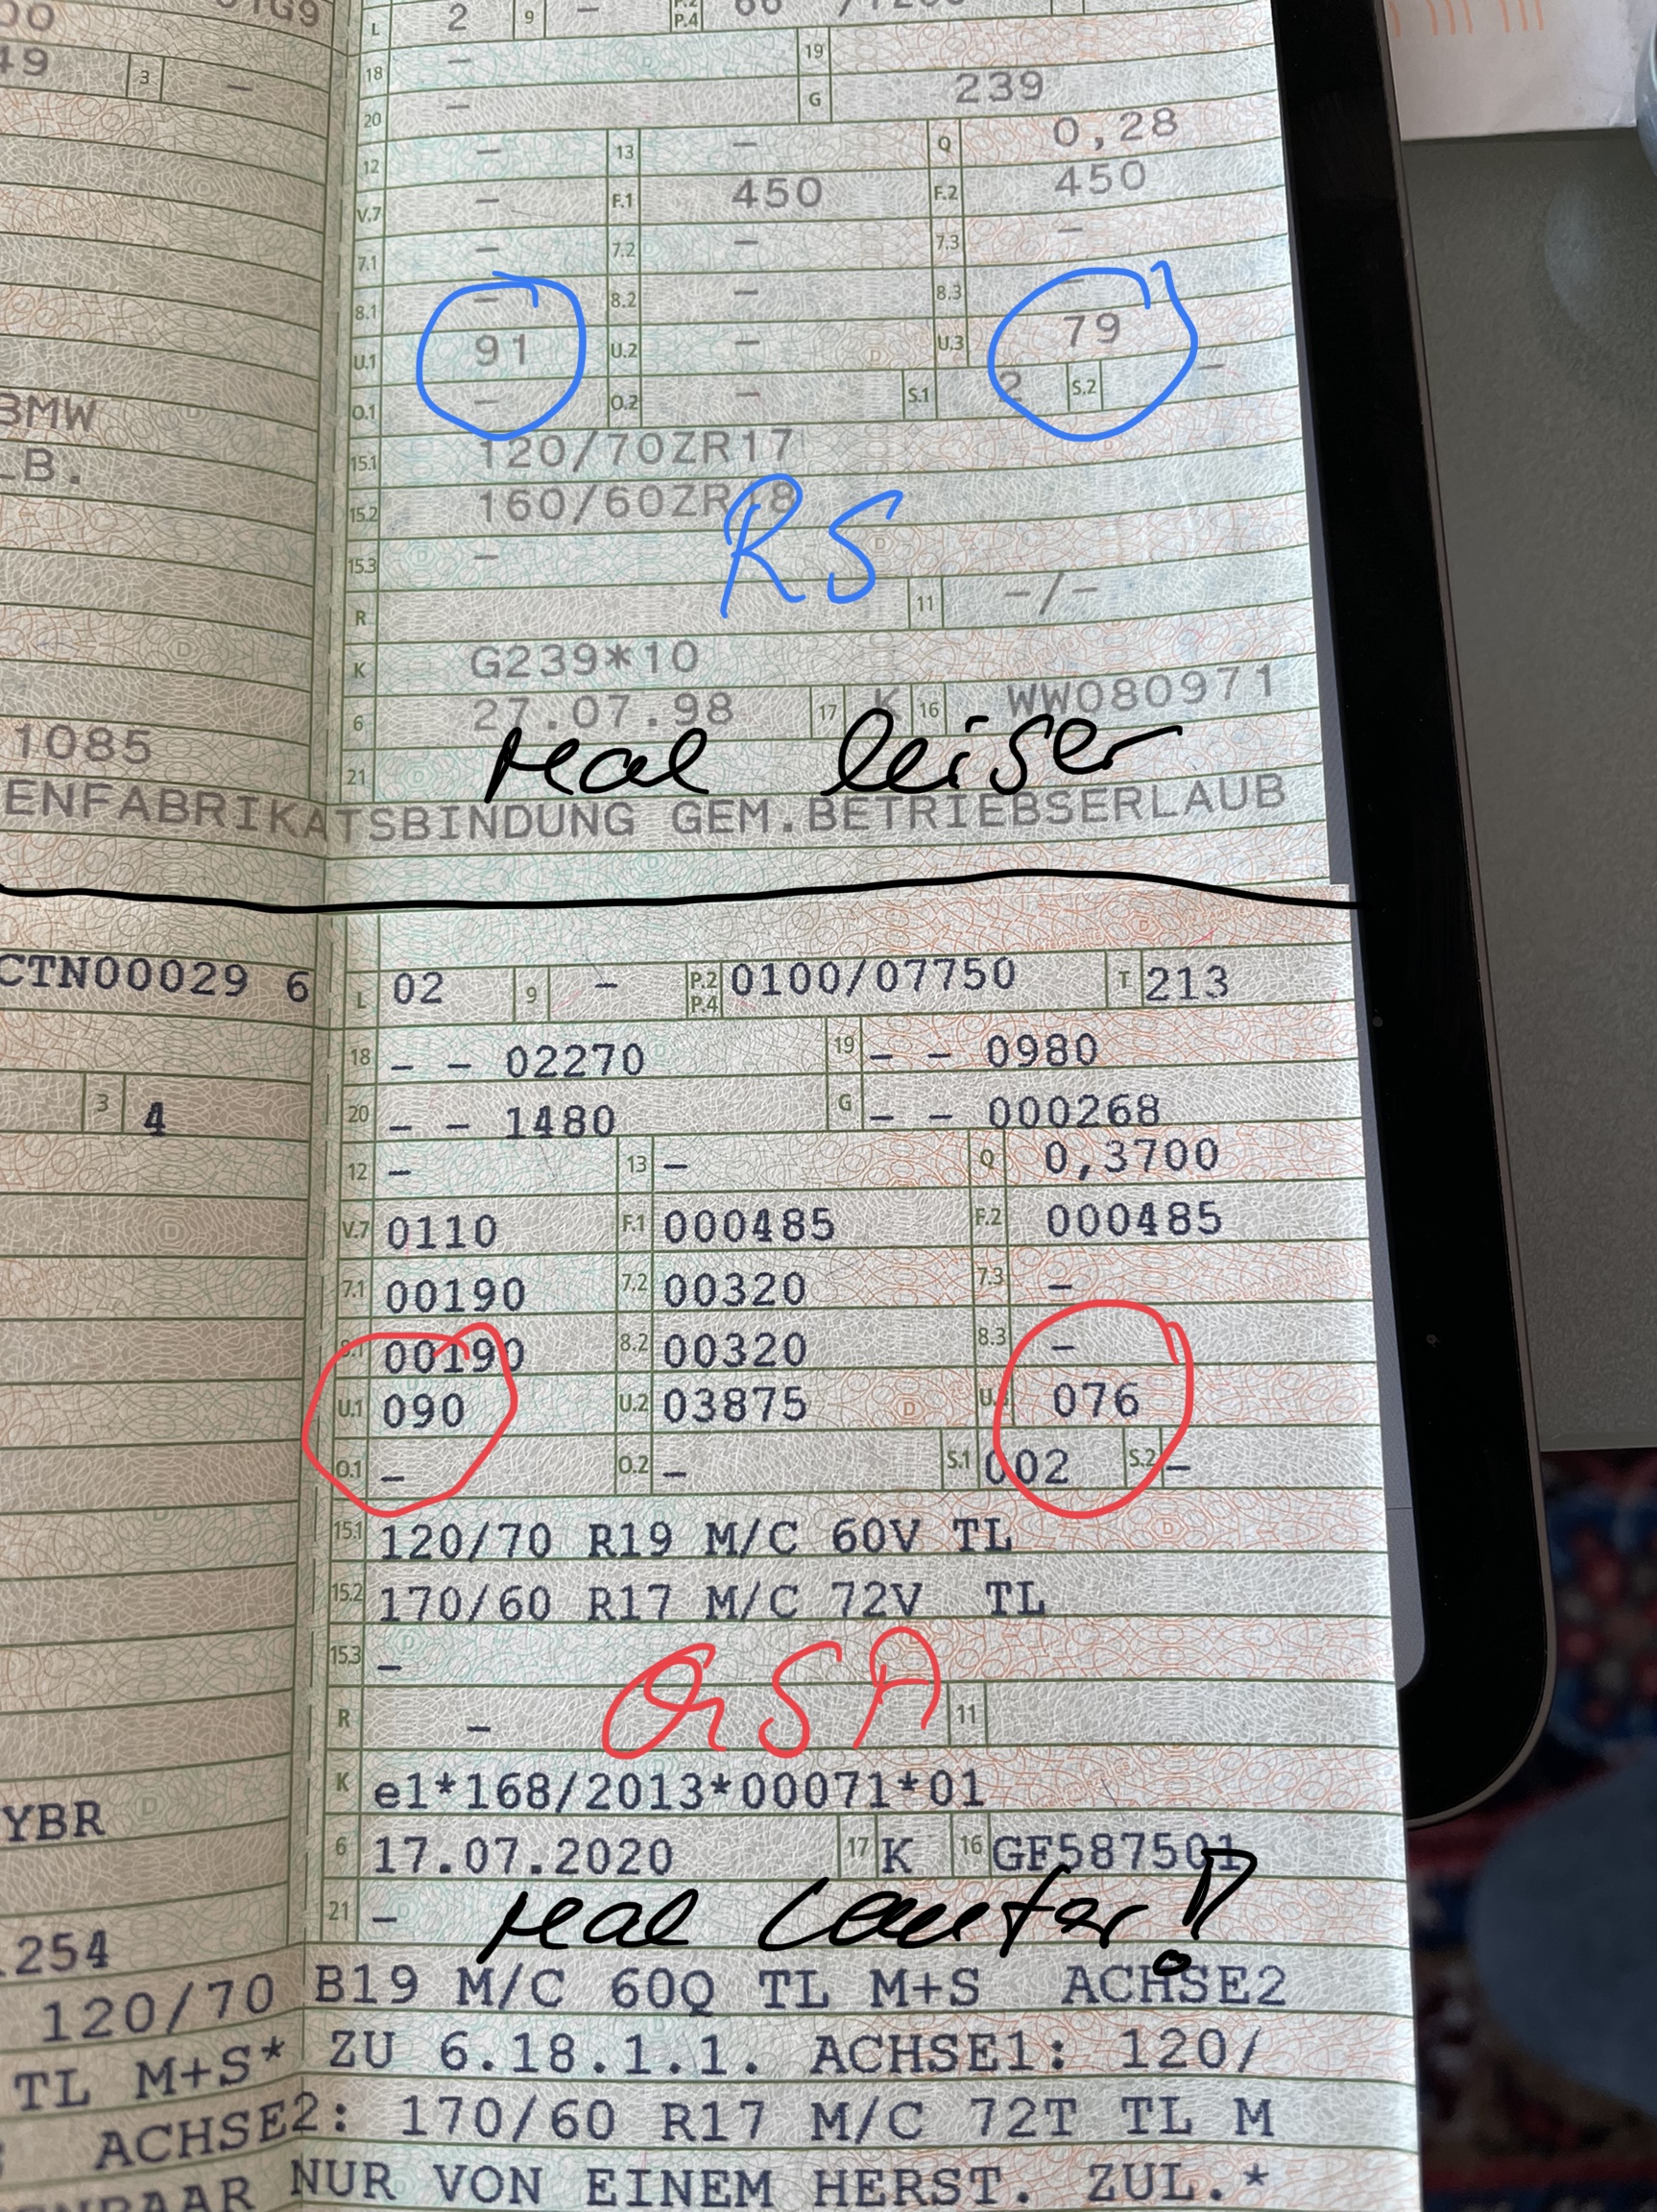 L 2 9 – P.2 P.4
49 3 – 18 – 19
20 – G 239
12 – 13 – Q 0,28
V.7 – F.1 450 F.2 450
7.1 – 7.2 – 7.3 –
8.1 – 8.2 – 8.3 –
U.1 91 U.2 – U.3 79
O.1 – O.2 – S.1 2 S.2 –
BMW 15.1 120/70ZR17
LB. 15.2 160/60ZR18
RS
15.3 –
R 11 –/–
K G239*10
6 27.07.98 17 K 16 WW080971
1085 21 real leiser
ENFABRIKATSBINDUNG GEM.BETRIEBSERLAUB
CTN00029 6 L 02 9 – P.2 P.4 0100/07750 T 213
18 – – 02270 19 – – 0980
3 4 20 – – 1480 G – – 000268
12 – 13 – Q 0,3700
V.7 0110 F.1 000485 F.2 000485
7.1 00190 7.2 00320 7.3 –
8.1 00190 8.2 00320 8.3 –
U.1 090 U.2 03875 U.3 076
O.1 – O.2 – S.1 002 S.2 –
15.1 120/70 R19 M/C 60V TL
15.2 170/60 R17 M/C 72V TL
15.3 –
GSA
R – 11
K e1*168/2013*00071*01
YBR 6 17.07.2020 17 K 16 GF587501
21 – real lauter!
254
120/70 B19 M/C 60Q TL M+S ACHSE2
TL M+S* ZU 6.18.1.1. ACHSE1: 120/
ACHSE2: 170/60 R17 M/C 72T TL M
NPAAR NUR VON EINEM HERST. ZUL.*